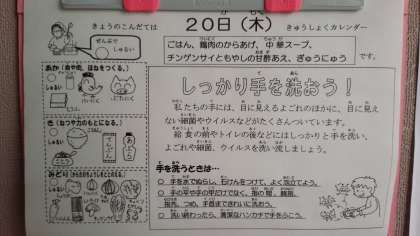 きょうのこんだては
20日(木)
きゅうしょくカレンダー
ぜんぶで
しゅるい
ごはん、鶏肉のからあげ、中華スープ、
チンゲンサイともやしの甘酢あえ、ぎゅうにゅう
です。
あか
しゅるい
き
しゅるい
みどり
しゅるい
しっかり手を洗おう!
私たちの手には、目に見えるよごれのほかに、目に見え
ない細菌やウイルスなどがたくさんついています。
給食の前やトイレの後などにはしっかりと手を洗い、
よごれや細菌、ウイルスを洗い流しましょう。
手を洗うときは…
○ 手を水でぬらし、石けんをつけて、よく泡立てよう。
○ 手の平や手の甲だけでなく、指の間、
つめ、手首まできれいに洗おう。
○ 洗い終わったら、清潔なハンカチで手をふこう。